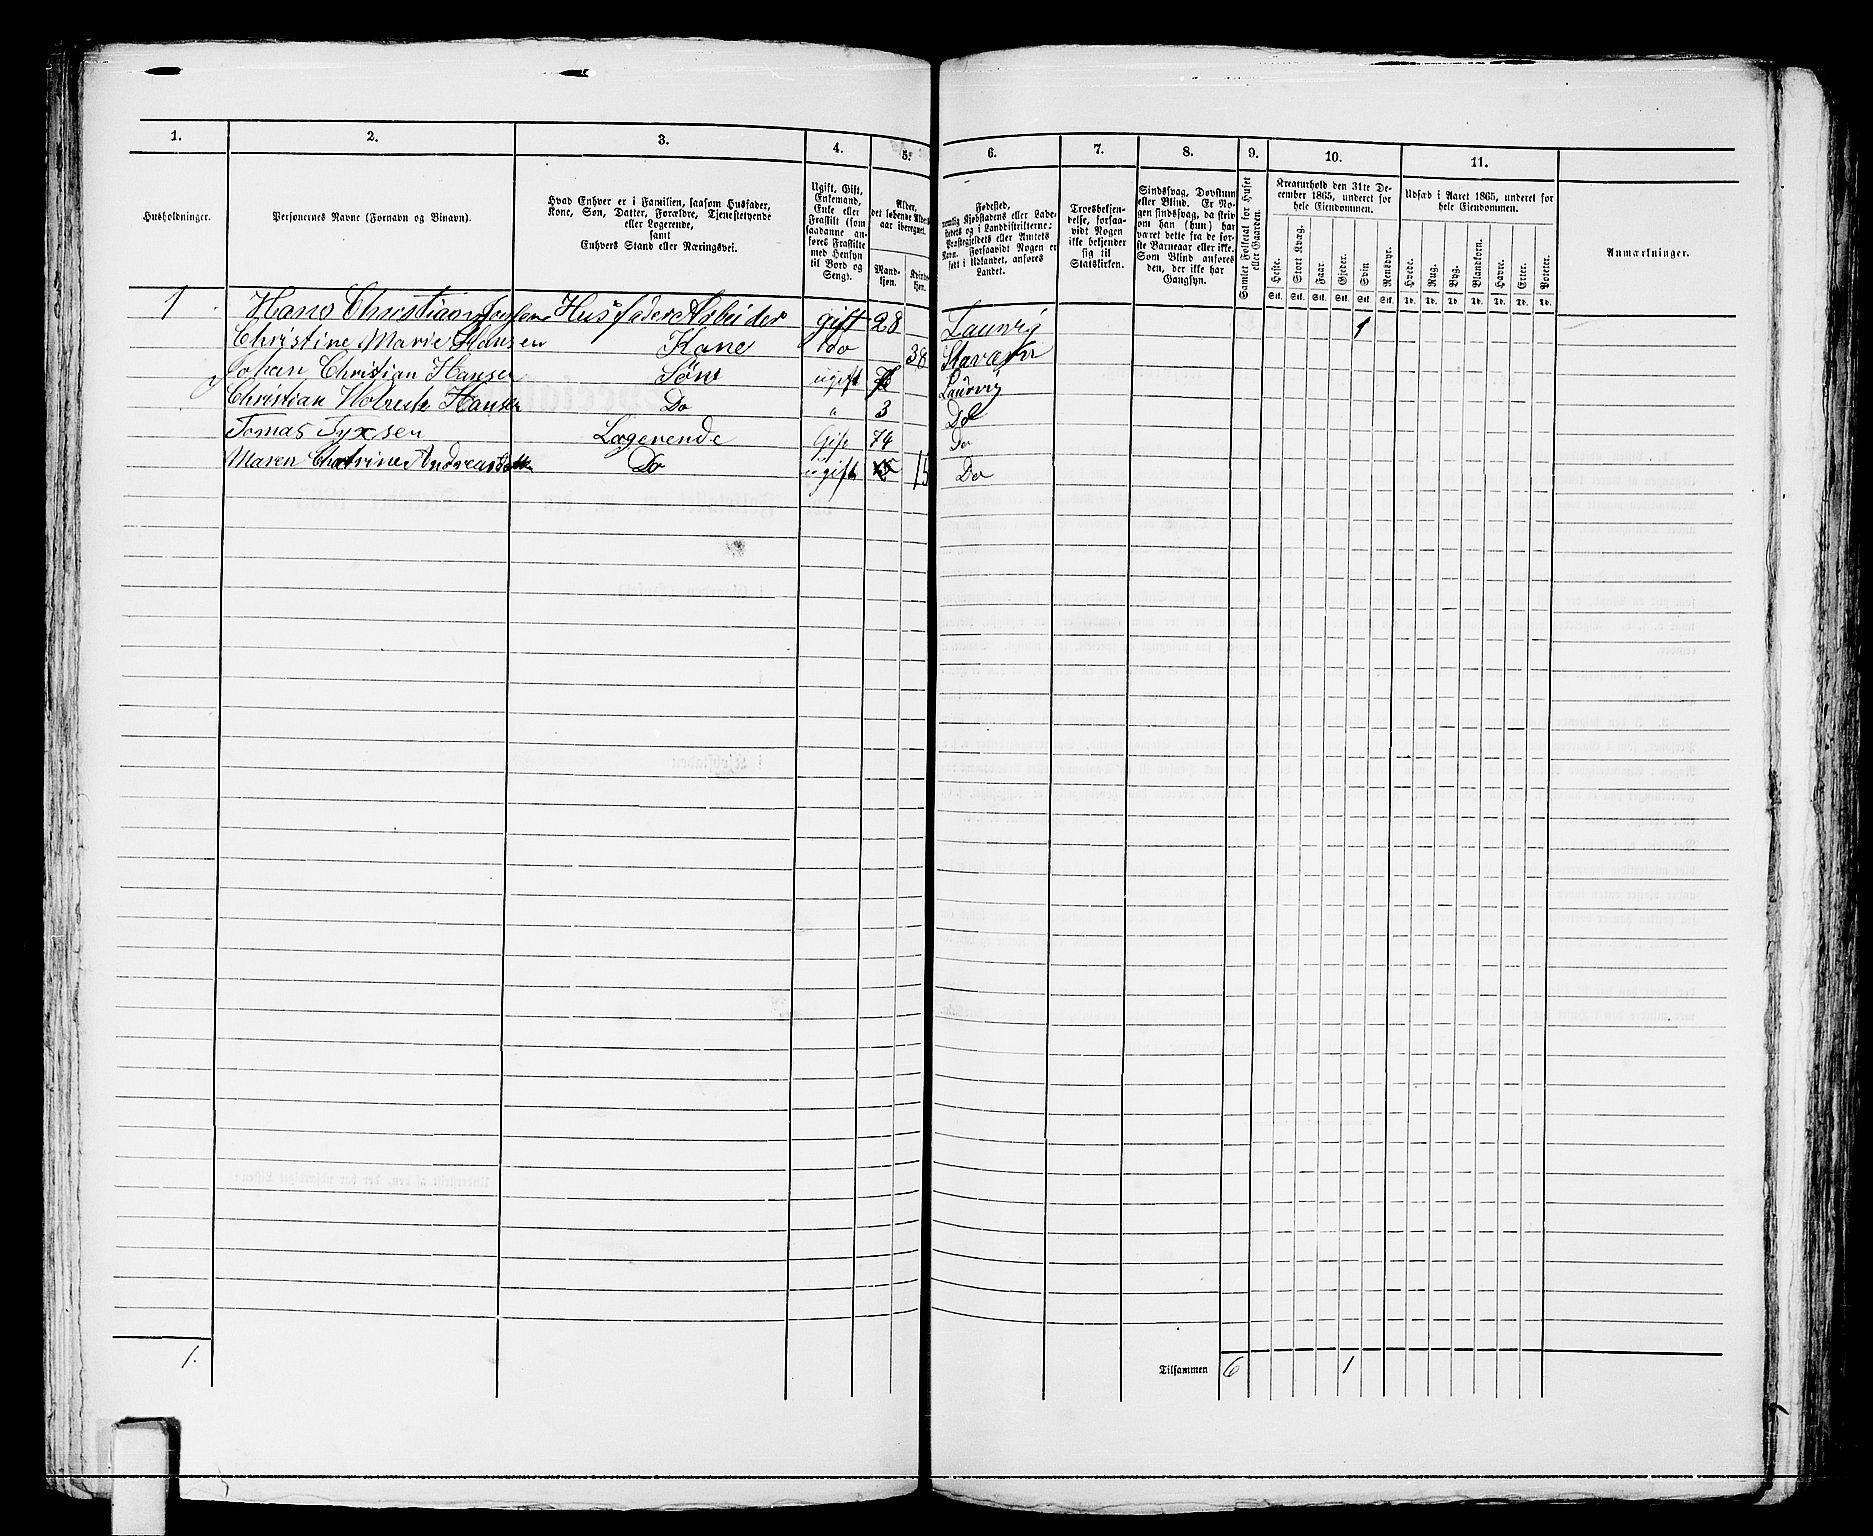 1. 2. 3. 4. 5. 6. 7. 8. 9. 10. 11.
Husholdninger.
Personernes Navne (Fornavn og Binavn).
Hvad Enhver er i Familien, saasom Husfader,
Kone, Søn, Datter, Forældre, Tjenestetyende
eller Logerende,
samt
Enhvers Stand eller Næringsvei.
Ugift, Gift,
Enkemand,
Enke eller
Fraskilt (som
saadanne an-
føres Fraskilte
med Hensyn
til Bord og
Seng).
Alder,
det løbende Alders-
aar iberegnet.
Mand-
kjøn.
Kvinde-
kjøn.
Fødested,
nemlig Kjøbstadens eller Lade-
stedets og i Landdistrikterne:
Præstegjeldets eller Amtets
Navn. Forsaavidt Nogen er
født i Udlandet, anføres
Landet.
Troesbekjen-
delse, forsaa-
vidt Nogen
ikke bekjender
sig til
Statskirken.
Sindssvag, Døvstum
eller Blind. Er No-
gen sindssvag, da skriv
om han (hun) har
været dette fra de før-
ste Barneaar eller ikke.
Som Blind anføres
den, der ikke har
Gangsyn.
Samlet Folketal for Huset
eller Gaarden.
Kreaturhold den 31te De-
cember 1865, underet for
hele Eiendommen.
Heste. Stort Kvæg. Faar. Gjeder. Svin Rensdyr.
Stk. Stk. Stk. Stk. Stk. Stk.
Udsæd i Aaret 1865, underet for
hele Eiendommen.
Hvede. Rug. Byg. Blandkorn. Havre. Erter. Poteter.
Td. Td. Td. Td. Td. Td. Td.
Anmærkninger.
1 Hans Christian Husfader Arbeider gift 28 Laurvig 1
Christine Marie Hansen Kone do 38
Johan Christian Hansen Søn ugift Laurvig
Christian Hansen Do " 3 Do
Tomas Logerende Gift 74 Do
Maren Do ugift 15 Do
1. Tilsammen 6 1